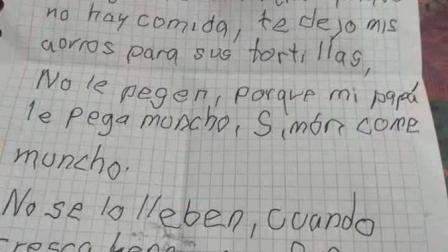 no hay comida, te dejo mis
aorros para sus tortillas,
No le pegen, porque mi papá
le pega muncho, Simón come
muncho.
No se lo lleben, cuando